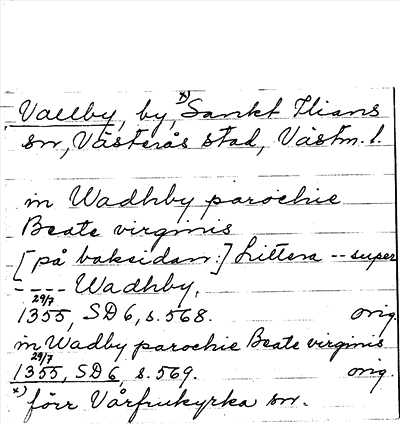 Vallby, by, x) Sankt Ilians
sn, Västerås stad, Västm. l.
in Wadhby parochie
Beate virginis
[på baksidan:] Littera -- super
---- Wadhby.
29/7 1355, SD 6, s. 568. orig.
in Wadby parochie Beate virginis
29/7 1355, SD 6, s. 569. orig.
x) förr Vårfrukyrka sn.